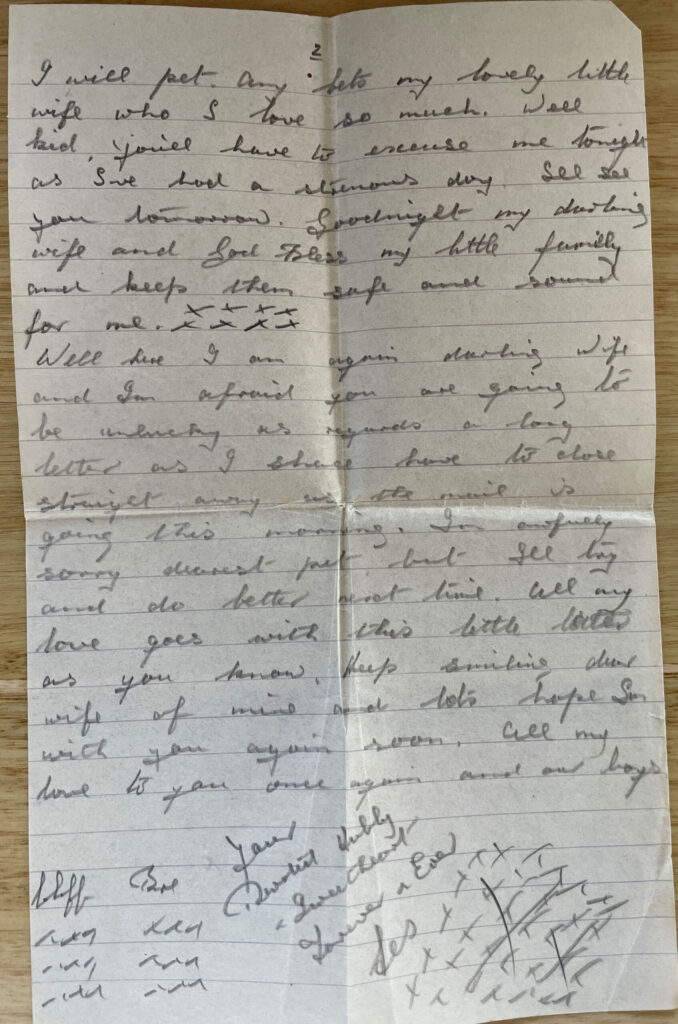 2
I will pet. Any lets my lovely little
wife who I love so much. Well
kid, you'll have to excuse me tonight
as I've had a strenuous day. I'll see
you tomorrow. Goodnight my darling
wife and God Bless my little familly
and keeps them safe and sound
for me. x x x x
x x x x
Well here I am again darling wife
and I'm afraid you are going to
be unlucky as regards a long
letter as I shall have to close
straight away as the mail is
going this morning. I'm awfully
sorry dearest pet, but I'll try
and do better next time. All my
love goes with this little letter
as you know. Keep smiling dear
wife of mine and lets hope I'm
with you again soon. All my
love to you once again and our boys
Your
Devoted Hubby
Sweetheart
Forever n Ever
Les